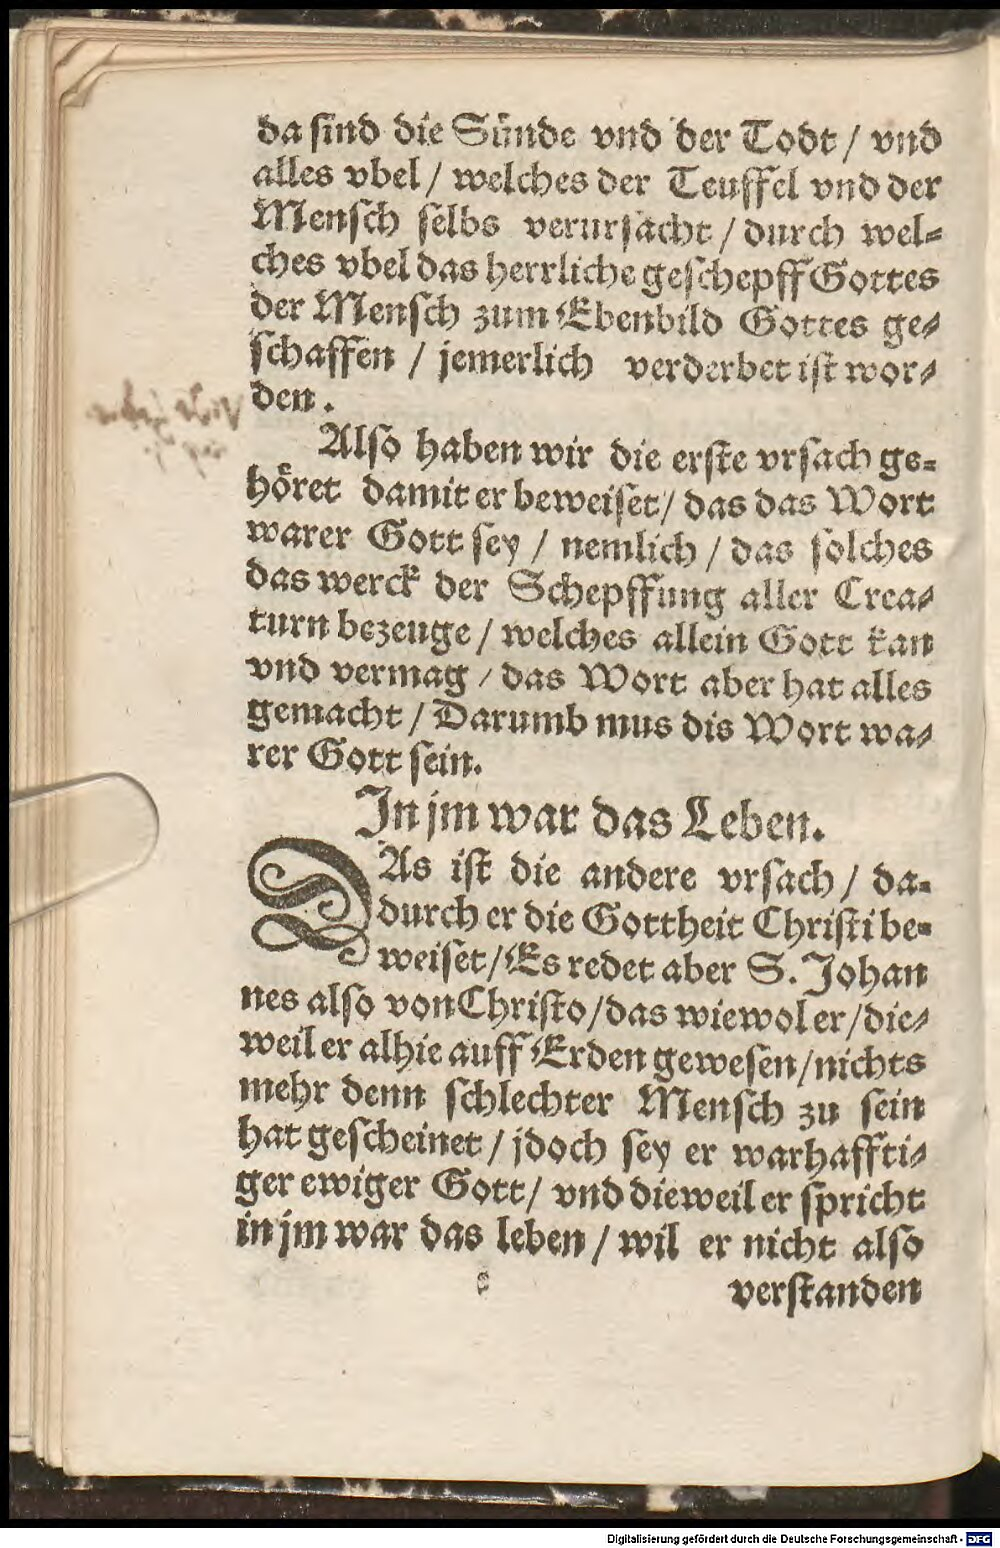 da sind die Sünde vnd der Todt / vnd
alles vbel / welches der Teuffel vnd der
Mensch selbs verursacht / durch wel-
ches vbel das herrliche geschepff Gottes
der Mensch zum Ebenbild Gottes ge-
schaffen / jemerlich verderbet ist wor-
den.
Also haben wir die erste vrsach ge-
höret damit er beweiset / das das Wort
warer Gott sey / nemlich / das solches
das werck der Schepffung aller Crea-
turn bezeuge / welches allein Gott kan
vnd vermag / das Wort aber hat alles
gemacht / Darumb mus dis Wort wa-
rer Gott sein.
In jm war das Leben.
DAs ist die andere vrsach / da-
durch er die Gottheit Christi be-
weiset / Es redet aber S. Johan
nes also von Christo / das wiewol er / die-
weil er alhie auff Erden gewesen / nichts
mehr denn schlechter Mensch zu sein
hat gescheinet / jdoch sey er warhaffti-
ger ewiger Gott / vnd dieweil er spricht
in jm war das leben / wil er nicht also
verstanden
Digitalisierung gefördert durch die Deutsche Forschungsgemeinschaft - DFG